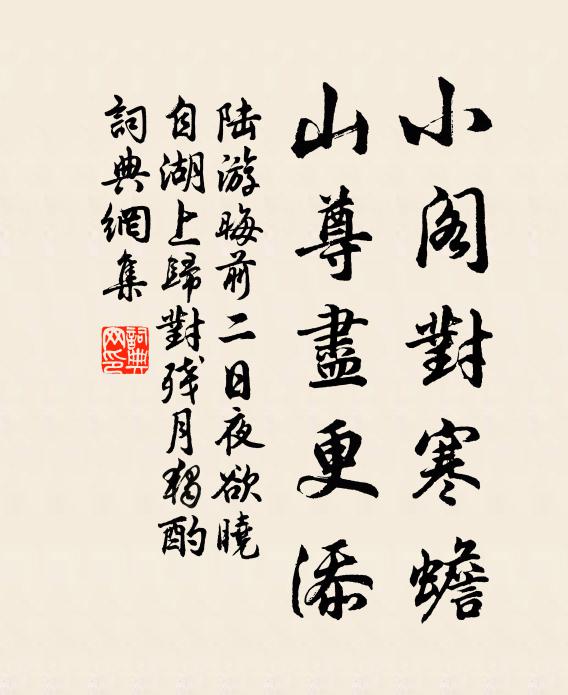 小阁對寒蟾
山尊盡更添
陆游晦前二日夜欲曉
自湖上歸對残月獨酌
詞典網集
詞典網印